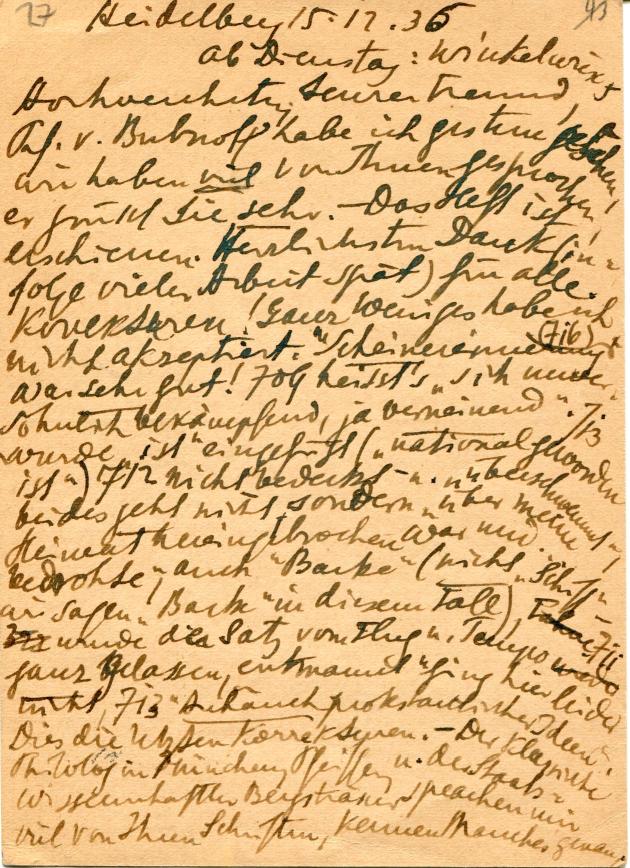 27
43
Heidelberg 15.12.36
ab Dienstag: Winkelwiese 5
Hochverehrter, teurer Freund,
Prof. v. Bubnoff habe ich gestern gesehen!
wir haben viel von Ihnen gesprochen,
er grüsst Sie sehr. – Das Heft ist
erschienen. Herzlichsten Dank (in-
folge vieler Arbeit spät) für alle
Korrekturen! Ganz Weniges habe ich
nicht akzeptiert. "Scheinerinnerung" (716)
war sehr gut! 709 heisst's "sich unver-
söhnlich bekämpfend, ja verneinend". 713
wurde "ist" eingefügt ("national geworden
ist") 712 nicht bedeckt u. "überschwemmt",
beides geht nicht, sondern "über meine
Heimat hereingebrochen war und
bedrohte", auch "Barke" (nicht "Schiff"
wir sagen "Barke" in diesem Fall), 711
wurde der Satz vom Flug u. Tempo
ganz gelassen, "entmannt" ging hier leider
nicht, 713 "Anhauch proksaischer Ideen"
Dies die letzten Korrekturen. – Der klassische
Philolog in München Pfeiffer u. der Staats-
wissenschaftler Bergsträsser sprachen mir
viel von Ihren Schriften, kennen Manches genau